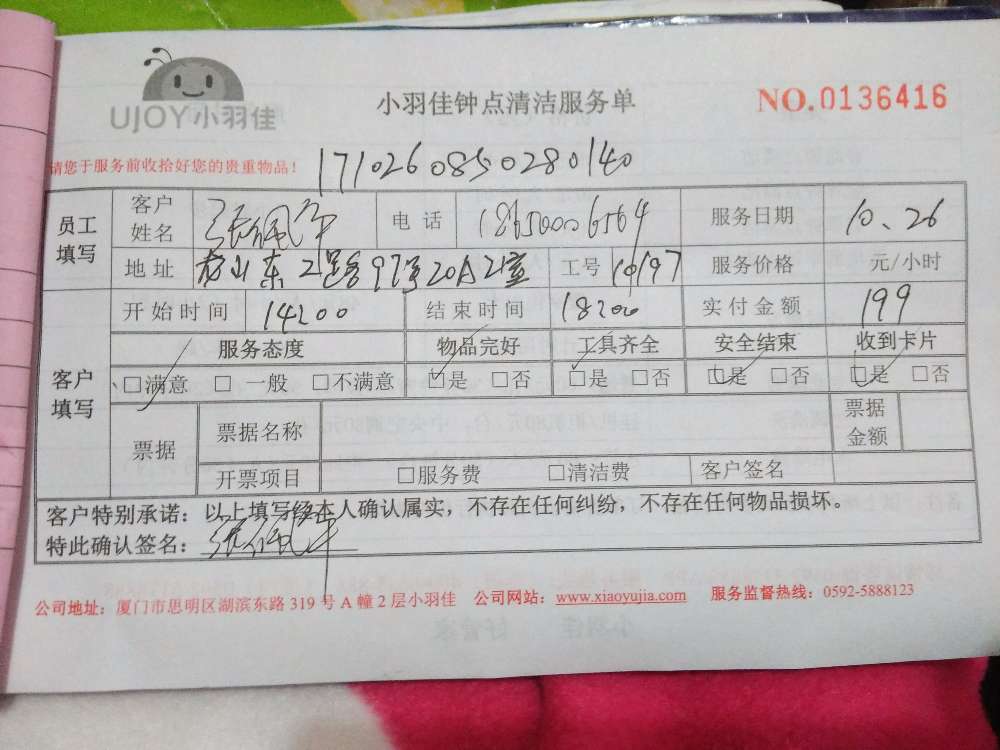 UJOY小羽佳
小羽佳钟点清洁服务单
NO.0136416
请您于服务前收拾好您的贵重物品！
1710260850280140
员工填写 客户姓名 张佩华 电话 18650006564 服务日期 10.26
地址 山东 97号20A 室 工号 10197 服务价格 元/小时
客户填写 开始时间 14:00 结束时间 18:00 实付金额 199
服务态度 物品完好 工具齐全 安全结束 收到卡片
□满意 □一般 □不满意 □是 □否 □是 □否 □是 □否 □是 □否
票据 票据名称 票据金额
开票项目 □服务费 □清洁费 客户签名
客户特别承诺：以上填写经本人确认属实，不存在任何纠纷，不存在任何物品损坏。
特此确认签名：张佩华
公司地址：厦门市思明区湖滨东路 319 号 A 幢 2 层小羽佳 公司网站：www.xiaoyujia.com 服务监督热线：0592-5888123